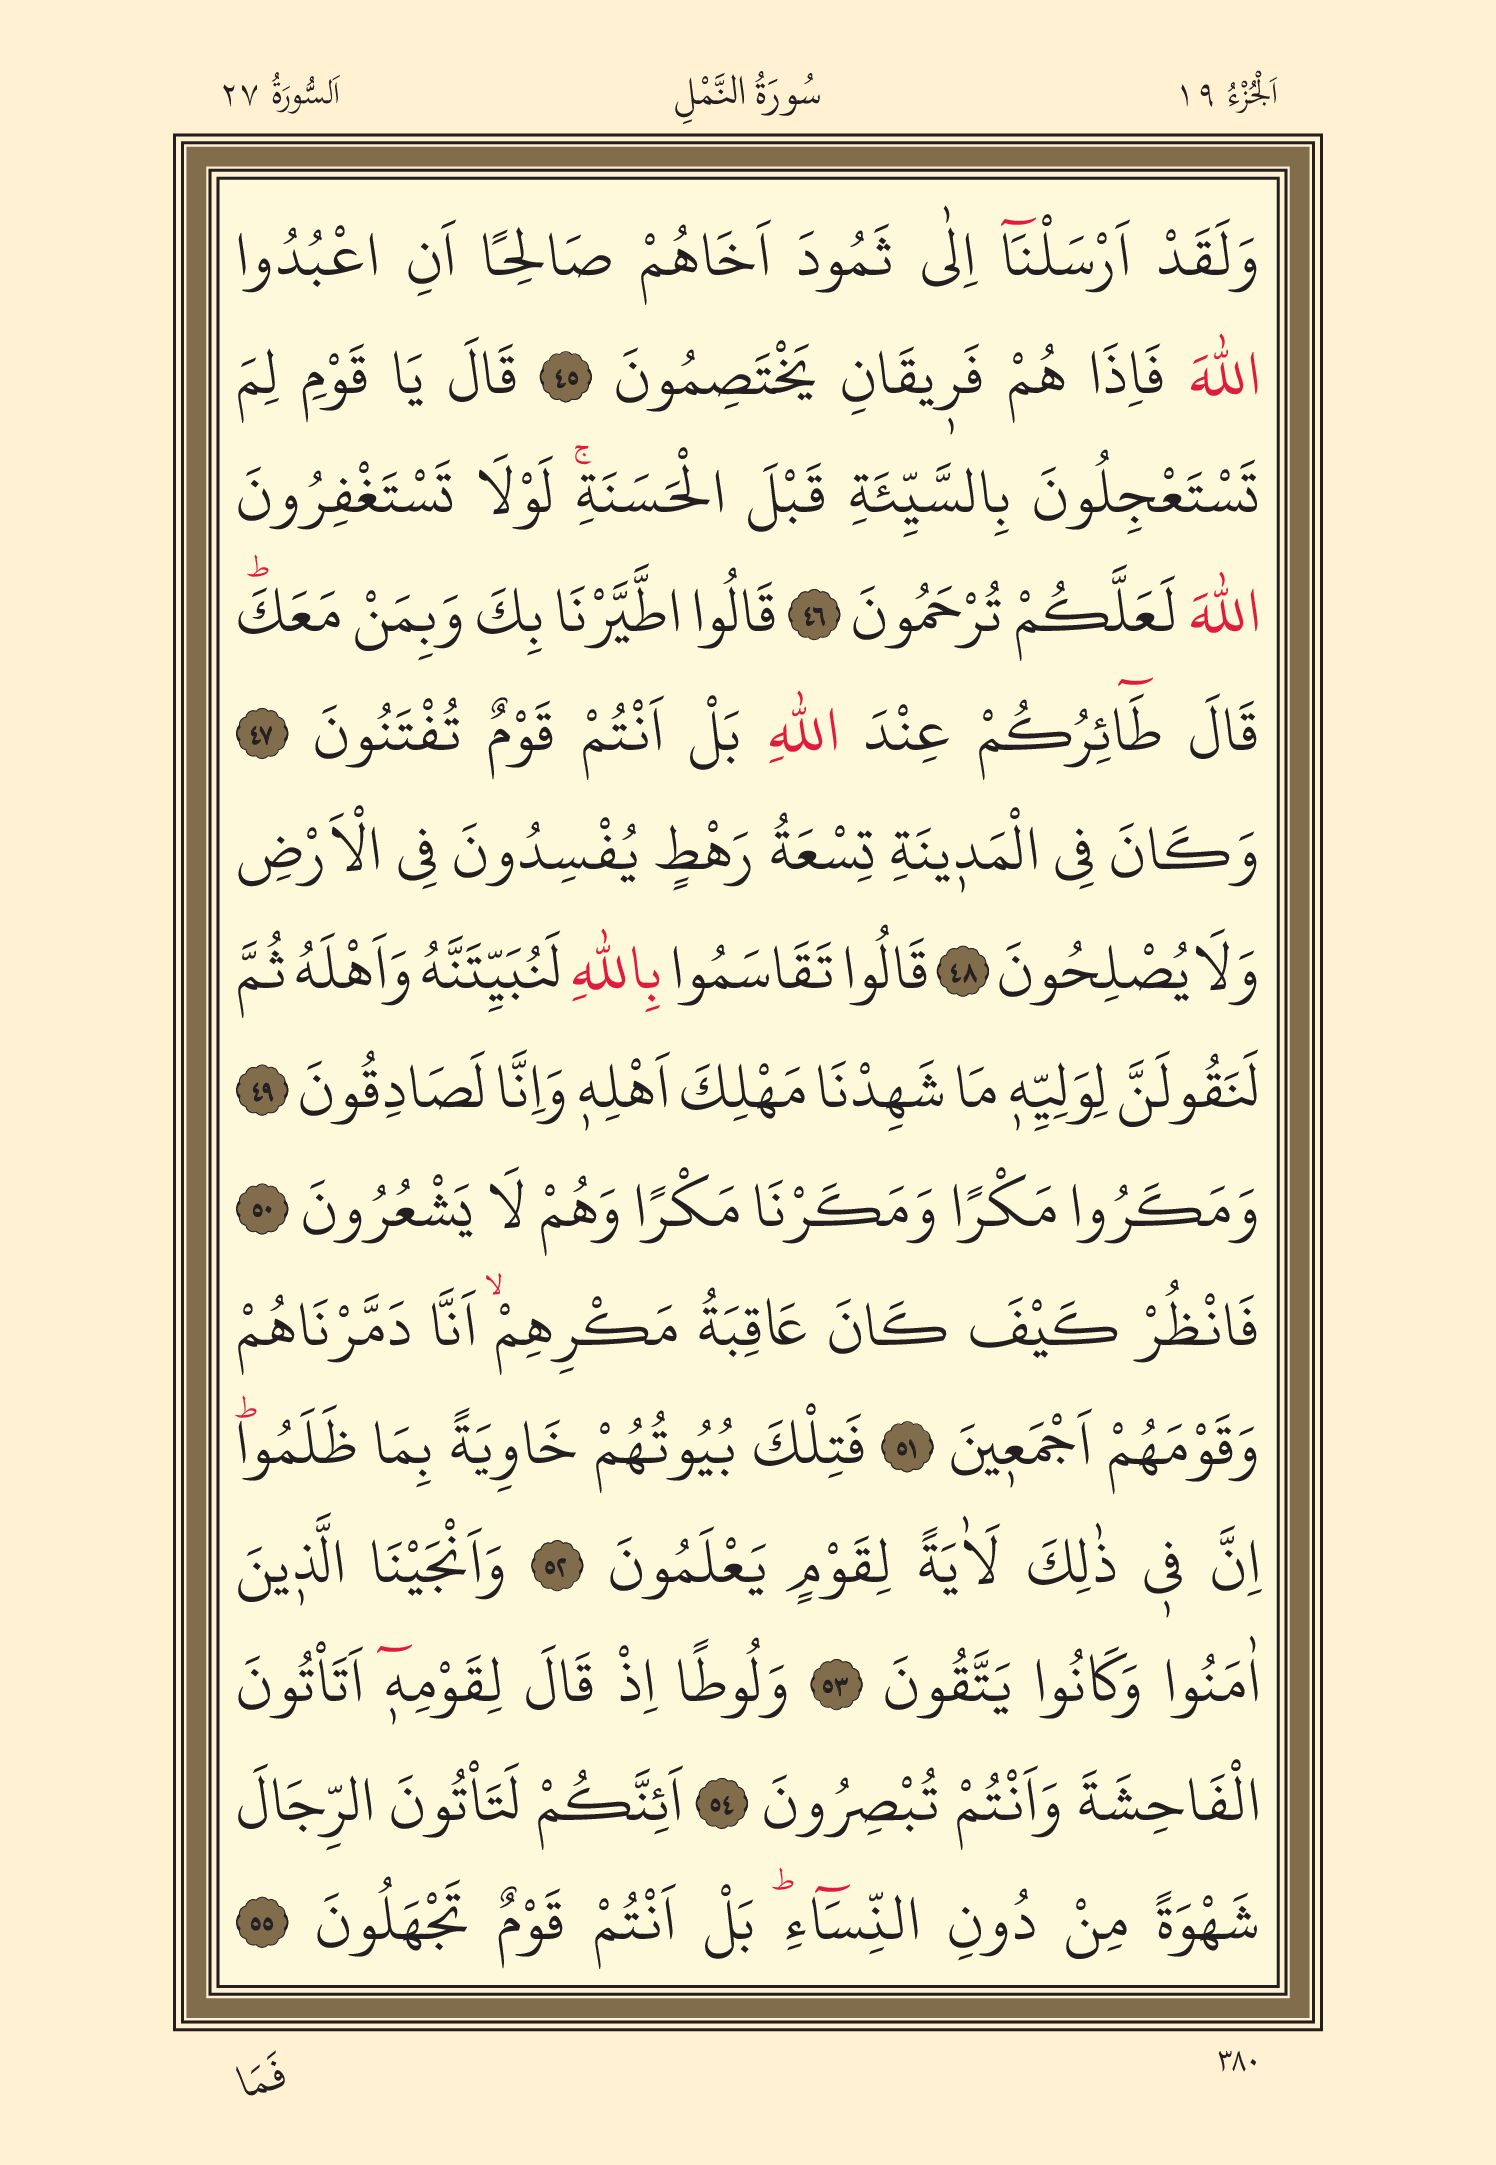 اَلْجُزْءُ ١٩
سُورَةُ النَّمْلِ
اَلسُّورَةُ ٢٧
وَلَقَدْ اَرْسَلْنَٓا اِلٰى ثَمُودَ اَخَاهُمْ صَالِحًا اَنِ اعْبُدُوا
اللّٰهَ فَاِذَا هُمْ فَرٖيقَانِ يَخْتَصِمُونَ ٤٥ قَالَ يَا قَوْمِ لِمَ
تَسْتَعْجِلُونَ بِالسَّيِّئَةِ قَبْلَ الْحَسَنَةِۚ لَوْلَا تَسْتَغْفِرُونَ
اللّٰهَ لَعَلَّكُمْ تُرْحَمُونَ ٤٦ قَالُوا اطَّيَّرْنَا بِكَ وَبِمَنْ مَعَكَؕ
قَالَ طَٓائِرُكُمْ عِنْدَ اللّٰهِ بَلْ اَنْتُمْ قَوْمٌ تُفْتَنُونَ ٤٧
وَكَانَ فِى الْمَدٖينَةِ تِسْعَةُ رَهْطٍ يُفْسِدُونَ فِى الْاَرْضِ
وَلَا يُصْلِحُونَ ٤٨ قَالُوا تَقَاسَمُوا بِاللّٰهِ لَنُبَيِّتَنَّهُ وَاَهْلَهُ ثُمَّ
لَنَقُولَنَّ لِوَلِيِّهٖ مَا شَهِدْنَا مَهْلِكَ اَهْلِهٖ وَاِنَّا لَصَادِقُونَ ٤٩
وَمَكَرُوا مَكْرًا وَمَكَرْنَا مَكْرًا وَهُمْ لَا يَشْعُرُونَ ٥٠
فَانْظُرْ كَيْفَ كَانَ عَاقِبَةُ مَكْرِهِمْۙ اَنَّا دَمَّرْنَاهُمْ
وَقَوْمَهُمْ اَجْمَعٖينَ ٥١ فَتِلْكَ بُيُوتُهُمْ خَاوِيَةً بِمَا ظَلَمُواؕ
اِنَّ فٖى ذٰلِكَ لَاٰيَةً لِقَوْمٍ يَعْلَمُونَ ٥٢ وَاَنْجَيْنَا الَّذٖينَ
اٰمَنُوا وَكَانُوا يَتَّقُونَ ٥٣ وَلُوطًا اِذْ قَالَ لِقَوْمِهٖٓ اَتَاْتُونَ
الْفَاحِشَةَ وَاَنْتُمْ تُبْصِرُونَ ٥٤ اَئِنَّكُمْ لَتَاْتُونَ الرِّجَالَ
شَهْوَةً مِنْ دُونِ النِّسَٓاءِؕ بَلْ اَنْتُمْ قَوْمٌ تَجْهَلُونَ ٥٥
٣٨٠
فَمَا